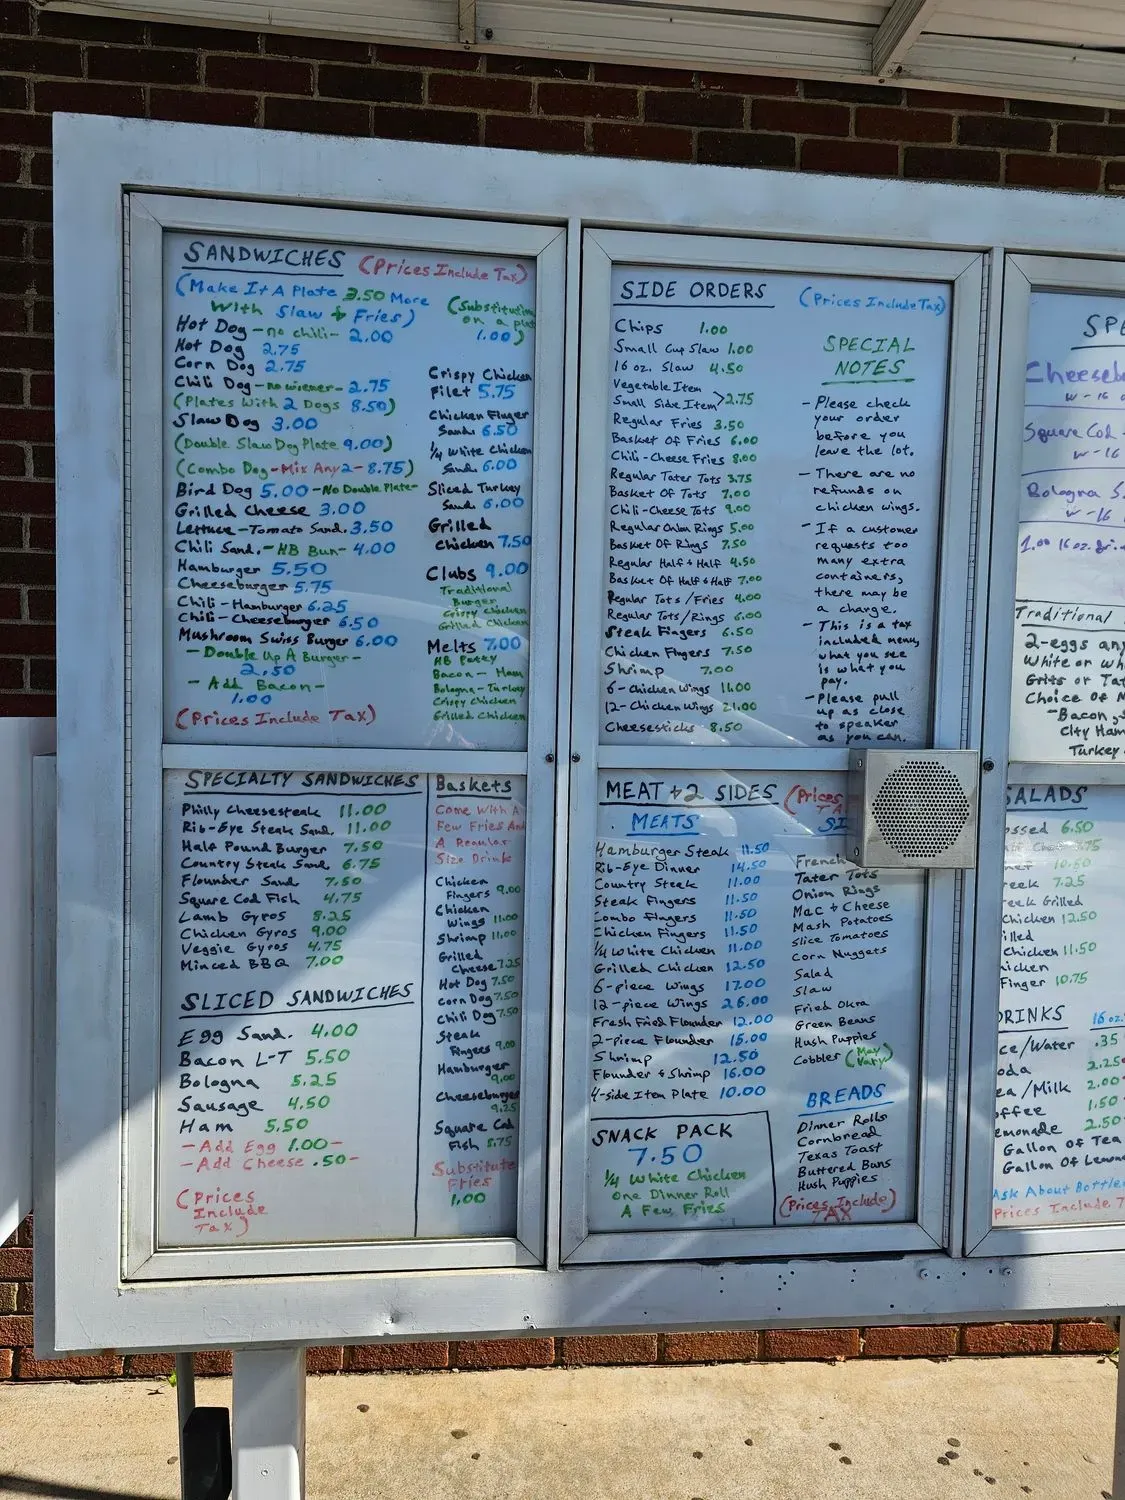 SANDWICHES (Prices Include Tax)
(Make It A Plate 3.50 More
With Slaw & Fries)
Hot Dog -no chili- 2.00
Hot Dog 2.75
Corn Dog 2.75
Chili Dog -no wiener- 2.75
(Plates With 2 Dogs 8.50)
Slaw Dog 3.00
(Double Slaw Dog Plate 9.00)
(Combo Dog -Mix Any 2- 8.75)
Bird Dog 5.00 -No Double Plate-
Grilled Cheese 3.00
Lettuce -Tomato Sand. 3.50
Chili Sand. -HB Bun- 4.00
Hamburger 5.50
Cheeseburger 5.75
Chili-Hamburger 6.25
Chili-Cheeseburger 6.50
Mushroom Swiss Burger 6.00
-Double Up A Burger-
2.50
-Add Bacon-
1.00
(Prices Include Tax)
(Substitution
on a plate
1.00)
Crispy Chicken
Filet 5.75
Chicken Finger
Sand. 6.50
1/4 White Chicken
Sand. 6.00
Sliced Turkey
Sand. 6.00
Grilled
Chicken 7.50
Clubs 9.00
Traditional
Burger
Crispy Chicken
Grilled Chicken
Melts 7.00
HB Patty
Bacon - Ham
Bologna - Turkey
Crispy Chicken
Grilled Chicken
SPECIALTY SANDWICHES
Philly Cheesesteak 11.00
Rib-Eye Steak Sand. 11.00
Half Pound Burger 7.50
Country Steak Sand. 6.75
Flounder Sand. 7.50
Square Cod Fish 4.75
Lamb Gyros 8.25
Chicken Gyros 9.00
Veggie Gyros 4.75
Minced BBQ 7.00
SLICED SANDWICHES
Egg Sand. 4.00
Bacon L-T 5.50
Bologna 5.25
Sausage 4.50
Ham 5.50
-Add Egg 1.00-
-Add Cheese .50-
(Prices
Include
Tax)
Baskets
Come With A
Few Fries And
A Regular
Size Drink
Chicken
Fingers 9.00
Chicken
Wings 11.00
Shrimp 11.00
Grilled
Cheese 7.25
Hot Dog 7.50
Corn Dog 7.50
Chili Dog 7.50
Steak
Fingers 9.00
Hamburger
9.00
Cheeseburger
9.25
Square Cod
Fish 8.75
Substitute
Fries
1.00
SIDE ORDERS (Prices Include Tax)
Chips 1.00
Small Cup Slaw 1.00
16 oz. Slaw 4.50
Vegetable Item
Small Side Item >2.75
Regular Fries 3.50
Basket Of Fries 6.00
Chili-Cheese Fries 8.00
Regular Tater Tots 3.75
Basket Of Tots 7.00
Chili-Cheese Tots 9.00
Regular Onion Rings 5.00
Basket Of Rings 7.50
Regular Half & Half 4.50
Basket Of Half & Half 7.00
Regular Tots/Fries 4.00
Regular Tots/Rings 6.00
Steak Fingers 6.50
Chicken Fingers 7.50
Shrimp 7.00
6-Chicken Wings 11.00
12-Chicken Wings 21.00
Cheesesticks 8.50
SPECIAL
NOTES
- Please check
your order
before you
leave the lot.
- There are no
refunds on
chicken wings.
- If a customer
requests too
many extra
containers,
there may be
a charge.
- This is a tax
included menu,
what you see
is what you
pay.
- Please pull
up as close
to speaker
as you can.
MEAT & 2 SIDES (Prices
MEATS
Hamburger Steak 11.50
Rib-Eye Dinner 14.50
Country Steak 11.00
Steak Fingers 11.50
Combo Fingers 11.50
Chicken Fingers 11.50
1/4 White Chicken 11.00
Grilled Chicken 12.50
6-piece Wings 17.00
12-piece Wings 26.00
Fresh Fried Flounder 12.00
2-piece Flounder 15.00
Shrimp 12.50
Flounder & Shrimp 16.00
4-side Item Plate 10.00
SI
French
Tater Tots
Onion Rings
Mac & Cheese
Mash Potatoes
Slice Tomatoes
Corn Nuggets
Salad
Slaw
Fried Okra
Green Beans
Hush Puppies
Cobbler (May Vary)
BREADS
Dinner Rolls
Cornbread
Texas Toast
Buttered Buns
Hush Puppies
(Prices Include)
TAX
SNACK PACK
7.50
1/4 White Chicken
One Dinner Roll
A Few Fries
SPE
Cheeseb
w - 16
Square Cod
w - 16
Bologna S
w - 16
1.00 16 oz.
Traditional
2-eggs any
White or wh
Grits or Tat
Choice Of M
-Bacon,
City Ham
Turkey
SALADS
ossed 6.50
10.50
reek 7.25
reek Grilled
Chicken 12.50
illed
Chicken 11.50
hicken
Finger 10.75
DRINKS 16 oz.
ce/Water .35
oda 2.25
ea/Milk 2.00
offee 1.50
emonade 2.50
Gallon of Tea
Gallon Of Lemona
Ask About Bottle
Prices Include T